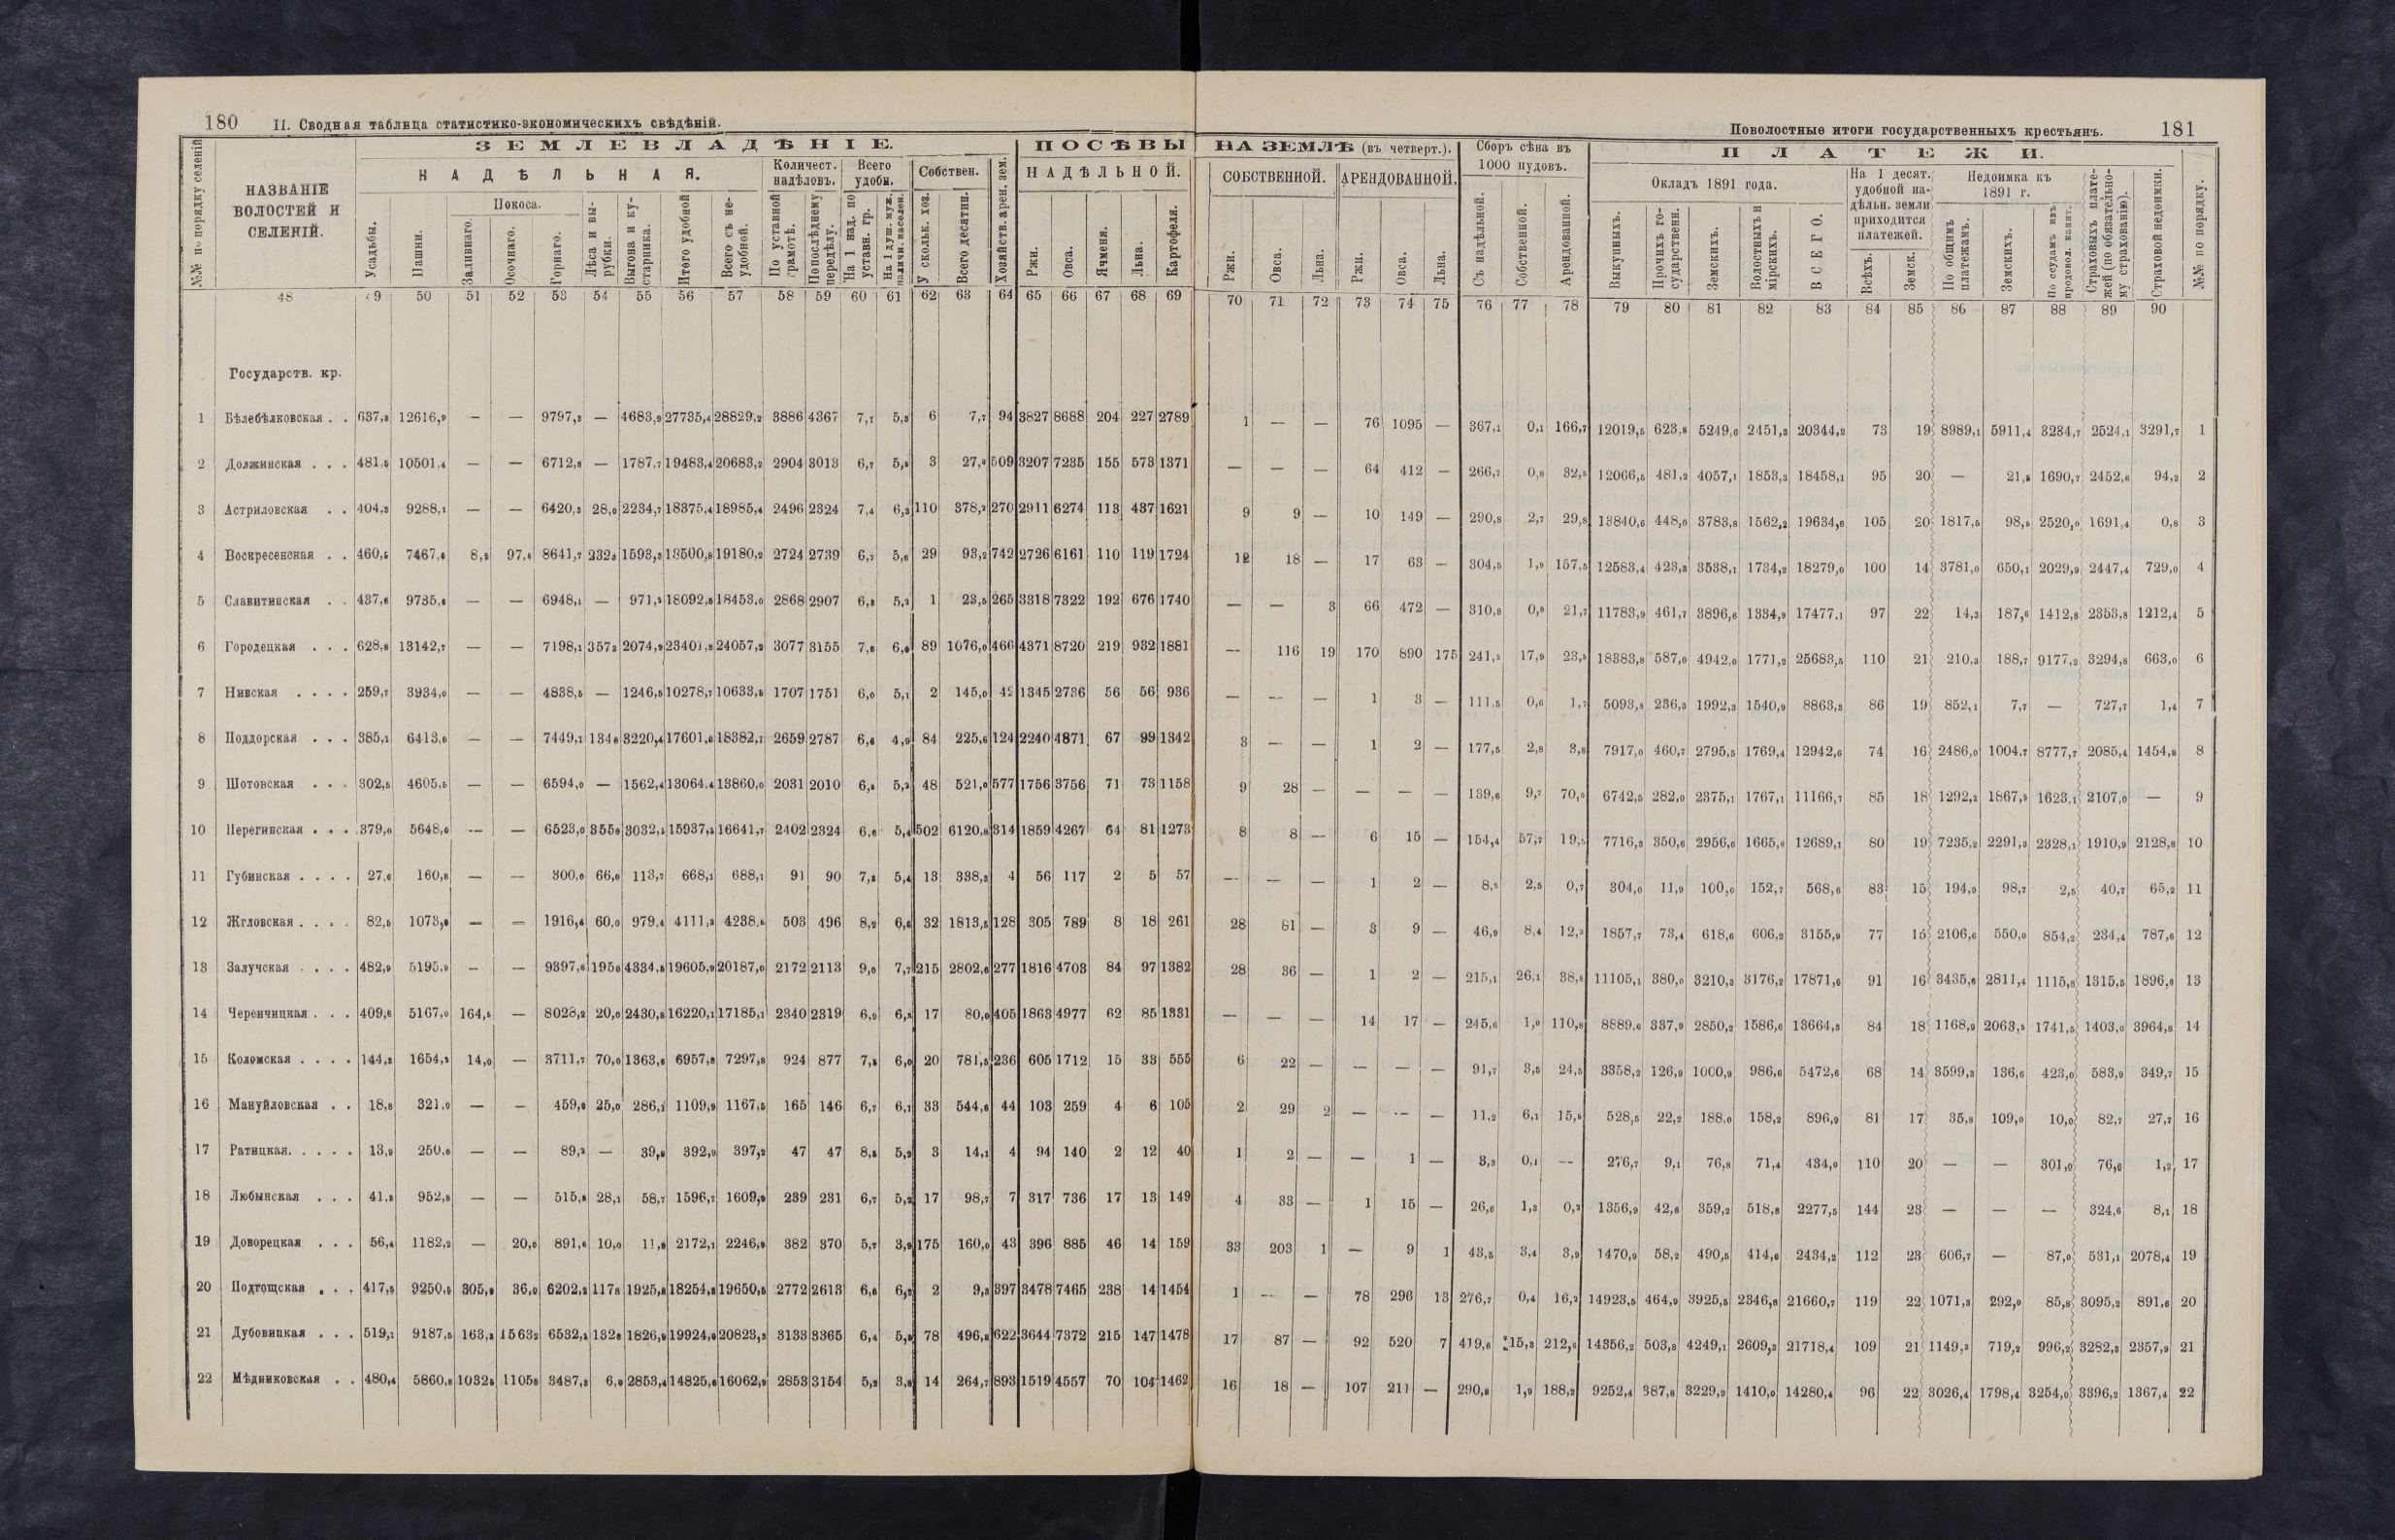 180 II. Сводная таблица статистико-экономическихъ свѣдѣній.
Поволостные итоги государственныхъ крестьянъ. 181
№№ по порядку селеній
НАЗВАНІЕ ВОЛОСТЕЙ И СЕЛЕНІЙ.
ЗЕМЛЕВЛАДѢНІЕ.
НАДѢЛЬНАЯ.
Усадьбы.
Пашни.
Покоса.
Заливнаго.
Осочнаго.
Горнаго.
Лѣса и вырубки.
Выгона и кустарника.
Итого удобной
Всего съ неудобной.
Количест. надѣловъ.
По уставной грамотѣ.
По послѣднему передѣлу.
Всего удобн.
На 1 над. по уставн. гр.
На 1 душ. муж. наличн. населен.
Собствен.
У скольк. хоз.
Всего десятин.
Хозяйств. арен. зем.
ПОСѢВЫ НА ЗЕМЛѢ (въ четверт.).
НАДѢЛЬНОЙ.
Ржи.
Овса.
Ячменя.
Льна.
Картофеля.
СОБСТВЕННОЙ.
Ржи.
Овса.
Льна.
АРЕНДОВАННОЙ.
Ржи.
Овса.
Льна.
Сборъ сѣна въ 1000 пудовъ.
Съ надѣльной.
Собственной.
Арендованной.
ПЛАТЕЖИ.
Окладъ 1891 года.
Выкупныхъ.
Прочихъ государственн.
Земскихъ.
Волостныхъ и мірскихъ.
ВСЕГО.
На 1 десят. удобной надѣльн. земли приходится платежей.
Всѣхъ.
Земск.
Недоимка къ 1891 г.
По общимъ платежамъ.
Земскихъ.
По ссудамъ изъ продовол. капит.
Страховыхъ платежей (по обязательному страхованію).
Страховой недоимки.
№№ по порядку.
48 49 50 51 52 53 54 55 56 57 58 59 60 61 62 63 64 65 66 67 68 69 70 71 72 73 74 75 76 77 78 79 80 81 82 83 84 85 86 87 88 89 90
Государств. кр.
1 Бѣлебѣлковская . . 637,8 12616,9 — — 9797,3 — 4683,9 27735,4 28829,2 3886 4367 7,1 5,3 6 7,7 94 3827 8688 204 227 2789 1 — — 76 1095 — 367,1 0,1 166,7 12019,5 623,8 5249,6 2451,3 20344,2 73 19 8989,1 5911,4 3234,7 2524,1 3291,7 1
2 Должинская . . . 481,5 10501,4 — — 6712,8 — 1787,7 19483,4 20683,2 2904 3013 6,7 5,8 3 27,3 509 3207 7235 155 573 1371 — — — 64 412 — 266,7 0,8 32,5 12066,5 481,2 4057,1 1853,3 18458,1 95 20 — 21,8 1690,7 2452,6 94,2 2
3 Астриловская . . 404,3 9288,1 — — 6420,3 28,0 2234,7 18375,4 18985,4 2496 2324 7,4 6,3 110 378,2 270 2911 6274 113 437 1621 9 9 — 10 149 — 290,8 2,7 29,8 13840,6 448,0 3783,8 1562,2 19634,6 105 20 1817,5 98,5 2520,0 1691,4 0,8 3
4 Воскресенская . . 460,5 7467,8 8,3 97,6 8641,7 232,8 1593,8 18500,8 19180,2 2724 2739 6,7 5,6 29 93,2 742 2726 6161 110 119 1724 12 18 — 17 63 — 304,5 1,9 157,5 12583,4 423,3 3538,1 1734,2 18279,0 100 14 3781,0 650,1 2029,9 2447,4 729,0 4
5 Славитинская . . 437,6 9735,6 — — 6948,1 — 971,3 18092,6 18453,0 2868 2907 6,3 5,2 1 23,5 265 3318 7322 192 676 1740 — — 3 66 472 — 310,8 0,8 21,7 11783,9 461,7 3896,6 1334,9 17477,1 97 22 14,3 187,6 1412,8 2353,8 1212,4 5
6 Городецкая . . . 628,8 13142,7 — — 7198,1 357,3 2074,9 23401,8 24057,2 3077 3155 7,6 6,0 89 1076,0 466 4371 8720 219 932 1881 — 116 19 170 890 175 241,5 17,9 23,5 18383,8 587,0 4942,0 1771,2 25683,5 110 21 210,3 188,7 9177,2 3294,8 663,0 6
7 Нивская . . . . 259,7 3934,0 — — 4838,5 — 1246,5 10278,7 10633,5 1707 1751 6,0 5,1 2 145,0 42 1345 2736 56 56 936 — — — 1 3 — 111,5 0,6 1,7 5093,8 236,3 1992,3 1540,9 8863,3 86 19 852,1 7,7 — 727,7 1,4 7
8 Поддорская . . . 385,1 6413,6 — — 7449,1 134,0 3220,4 17601,8 18382,1 2659 2787 6,6 4,9 84 225,6 124 2240 4871 67 99 1342 3 — — 1 2 — 177,5 2,8 3,8 7917,0 460,7 2795,5 1769,4 12942,6 74 16 2486,0 1004,7 8777,7 2085,4 1454,8 8
9 Шотовская . . . 302,5 4605,5 — — 6594,0 — 1562,4 13064,4 13860,0 2031 2010 6,4 5,2 48 521,0 577 1756 3756 71 73 1158 9 28 — — — — 139,6 9,7 70,0 6742,5 282,0 2375,1 1767,1 11166,7 85 18 1292,2 1867,9 1623,1 2107,0 — 9
10 Перегинская . . . 379,0 5648,0 — — 6523,0 355,0 3032,1 15937,1 16641,7 2402 2324 6,6 5,4 502 6120,8 314 1859 4267 64 81 1273 8 8 — 6 15 — 154,4 57,7 19,5 7716,3 350,6 2956,6 1665,6 12689,1 80 19 7235,2 2291,3 2328,1 1910,9 2128,8 10
11 Губинская . . . . 27,6 160,8 — — 300,0 66,0 113,7 668,1 688,1 91 90 7,3 5,4 13 338,3 4 56 117 2 5 57 — — — 1 2 — 8,5 2,5 0,7 304,0 11,9 100,0 152,7 568,6 83 15 194,9 98,7 2,5 40,7 65,2 11
12 Жгловская . . . . 82,5 1073,0 — — 1916,4 60,0 979,4 4111,3 4238,6 503 496 8,2 6,6 32 1813,5 128 305 789 8 18 261 28 81 — 3 9 — 46,9 8,4 12,3 1857,7 73,4 618,6 606,2 3155,9 77 15 2106,6 550,0 854,2 234,4 787,6 12
13 Залучская . . . . 482,9 5195,0 — — 9397,6 195,0 4334,8 19605,9 20187,0 2172 2113 9,0 7,7 215 2802,6 277 1816 4703 84 97 1382 28 36 — 1 2 — 215,1 26,1 38,8 11105,1 380,0 3210,3 3176,2 17871,6 91 16 3435,6 2811,4 1115,8 1315,5 1896,6 13
14 Черенчицкая . . . 409,6 5167,0 164,5 — 8028,2 20,0 2430,8 16220,1 17185,1 2340 2319 6,9 6,8 17 80,0 405 1863 4977 62 85 1331 — — — 14 17 — 245,6 1,0 110,8 8889,6 337,9 2850,2 1586,6 13664,3 84 18 1168,9 2063,5 1741,5 1403,0 3964,8 14
15 Коломская . . . . 144,3 1654,3 14,0 — 3711,7 70,0 1363,6 6957,8 7297,8 924 877 7,5 6,0 20 781,5 236 605 1712 15 33 555 6 22 — — — — 91,7 3,5 24,5 3358,2 126,9 1000,9 986,6 5472,6 68 14 3599,3 136,6 423,0 583,9 349,7 15
16 Мануйловская . . 18,8 321,0 — — 459,0 25,0 286,1 1109,9 1167,5 165 146 6,7 6,1 33 544,6 44 103 259 4 6 105 2 29 2 — — — 11,2 6,1 15,5 528,5 22,2 188,0 158,2 896,9 81 17 35,8 109,0 10,0 82,7 27,7 16
17 Ратицкая . . . . . 13,9 250,0 — — 89,2 — 39,8 392,9 397,2 47 47 8,3 5,2 3 14,1 4 94 140 2 12 40 1 2 — — 1 — 3,3 0,1 — 276,7 9,1 76,8 71,4 434,0 110 20 — — 301,0 76,6 1,2 17
18 Любынская . . . 41,3 952,8 — — 515,8 28,1 58,7 1596,7 1609,9 239 231 6,7 5,2 17 98,7 7 317 736 17 13 149 4 33 — 1 15 — 26,6 1,3 0,2 1356,9 42,6 359,2 518,8 2277,5 144 23 — — — 324,6 8,1 18
19 Доворецкая . . . 56,4 1182,2 — 20,0 891,6 10,0 11,9 2172,1 2246,9 382 370 5,7 3,9 175 160,0 43 396 885 46 14 159 33 203 1 — 9 1 43,5 3,4 3,9 1470,9 58,2 490,5 414,6 2434,2 112 23 606,7 — 87,0 531,1 2078,4 19
20 Подгощская . . . 417,5 9250,5 305,0 36,0 6202,2 117,8 1925,8 18254,8 19650,5 2772 2613 6,6 6,2 2 9,3 397 3478 7465 238 14 1454 1 — — 78 296 13 276,7 0,4 16,2 14923,5 464,9 3925,5 2346,8 21660,7 119 22 1071,3 292,0 85,8 3095,2 891,6 20
21 Дубовицкая . . . 519,1 9187,5 163,3 1563,2 6532,1 132,8 1826,9 19924,9 20823,3 3133 3365 6,4 5,9 78 496,8 622 3644 7372 215 147 1478 17 87 — 92 520 7 419,6 15,3 212,6 14356,2 503,8 4249,1 2609,3 21718,4 109 21 1149,3 719,2 996,2 3282,3 2357,9 21
22 Мѣдниковская . . 480,4 5860,8 1032,6 1105,8 3487,3 6,0 2853,4 14825,6 16062,9 2853 3154 5,2 3,8 14 264,7 893 1519 4557 70 104 1462 16 18 — 107 211 — 290,8 1,9 188,2 9252,4 387,8 3229,9 1410,0 14280,4 96 22 3026,4 1798,4 3254,0 3396,2 1367,4 22